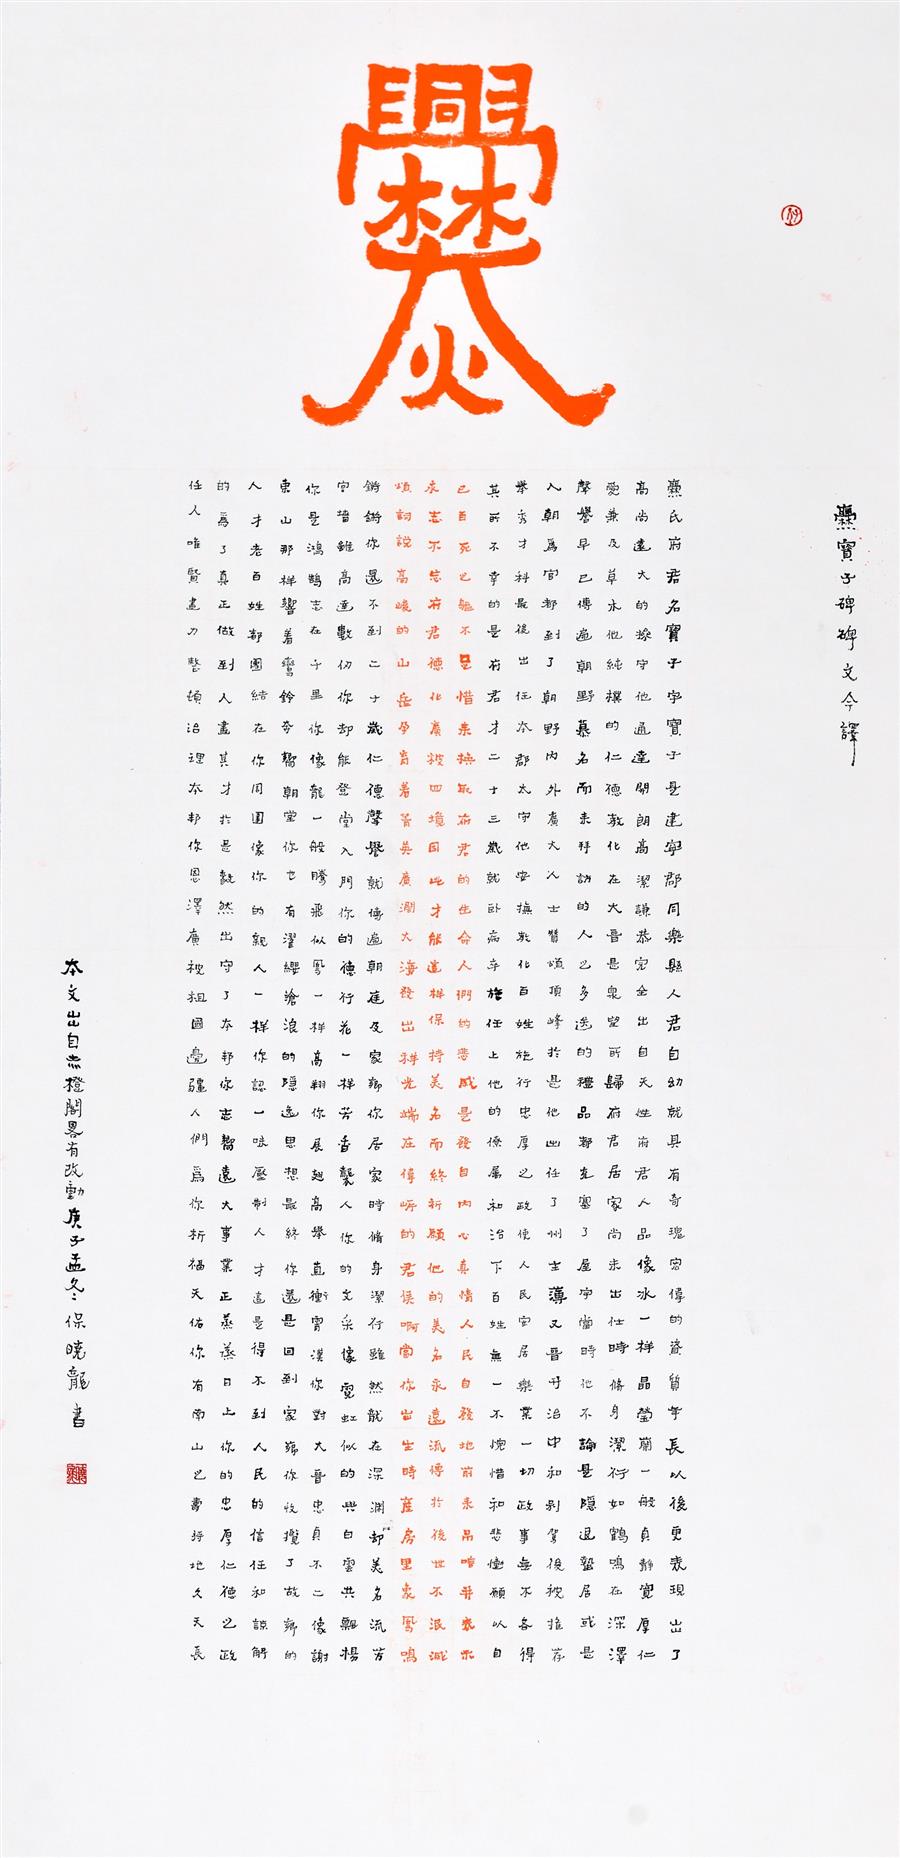 爨
爨寶子碑碑文今譯
爨氏府君名寶子字寶子是建寧郡同樂縣人君自幼就具有奇瑰宏偉的資質年長以後更表現出了
高尚遠大的操守他通達開朗高潔謙恭完全出自天性府君人品像冰一樣晶瑩蘭一般貞靜寬厚仁
愛兼及草木他純樸的仁德教化在大晉是眾望所歸府君居家尚未出仕時脩身潔行如鶴鳴在深澤
聲譽早已傳遍朝野慕名而來拜訪的人之多送的禮品都充塞了屋宇當時他不論是隱退蟄居或是
入朝爲官都到了朝野內外廣大人士贊頌頂峰於是他出任了州主薄又晉升治中和别駕後被推荐
舉秀才科最後出任本郡太守他安撫教化百姓施行忠厚之政使人民安居樂業一切政事無不各得
其所不幸的是府君才二十三歲就卧病卒於任上他的僚屬和治下百姓無一不惋惜和悲慟願以自
己百死之軀不足惜來換取府君的生命人們的悲戚是發自內心真情人民自發地前來吊唁并表示
永志不忘府君德化廣被四境因此才能遺祥保持美名而終祈願他的美名永遠流傳於後世不泯滅
頌詞說高峻的山岳孕育着菁英廣濶大海發出祥光端莊偉岸的君侯啊當你出生時産房里象鳳鳴
鏘鏘你還不到二十歲仁德聲譽就傳遍朝廷及家鄉你居家時脩身潔行雖然龍在深淵却美名流芳
宫墙雖高達數仞你却能登堂入門你的德行花一樣芳香襲人你的文采像霓虹似的與白雲共飄揚
你是鴻鵠志在千里你像龍一般騰飛似鳳一樣高翔你展翅高舉直衝霄漢你對大晉忠貞不二像謝
東山那樣響着鸞鈴奔馳朝堂你也有濯纓滄浪的隱逸思想最終你還是回到家鄉你收攬了故鄉的
人才老百姓都團結在你周圍像你的親人一樣你認一味壓制人才這是得不到人民的信任和諒解
的爲了真正做到人盡其才於是毅然出守了本邦你志嚮遠大事業正蒸蒸日上你的忠厚仁德之政
任人唯賢盡力整頓治理本邦你恩澤廣被祖國邊疆人們爲你祈福天佑你有南山之壽地久天長
本文出自赤橙閣畧有改動庚子孟冬保曉龍書